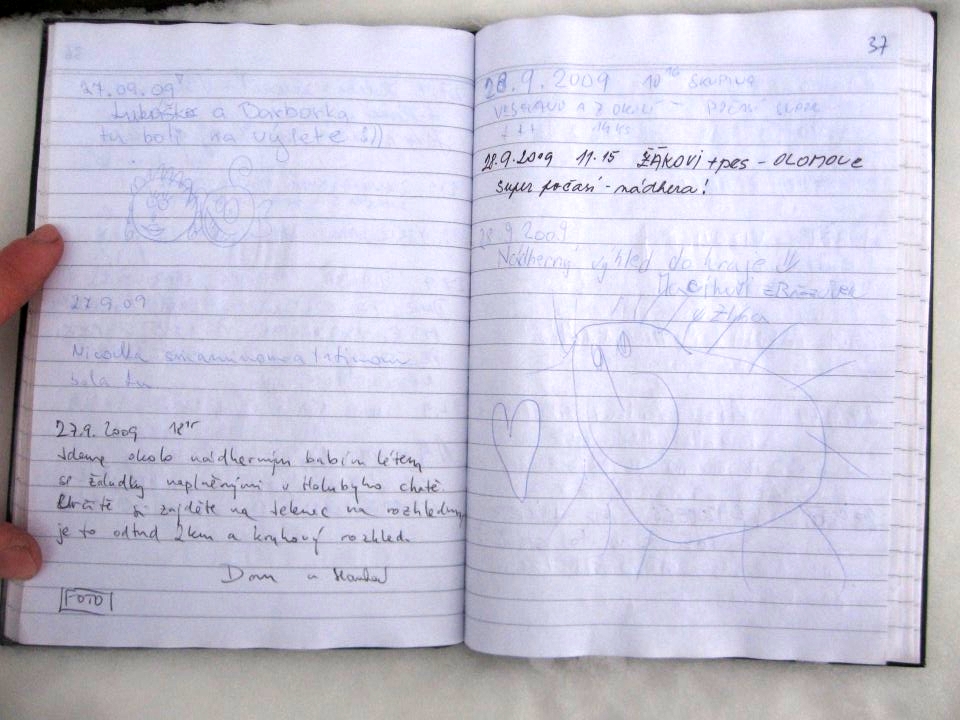 27.09.09
a Barborka
tu boli na výlete :))
27.9.09
Nicolka s maminom a
bola tu
27.9.2009
Jdeme okolo nádherným babím létem
se žaludky naplněnými v Holubyho chatě.
Určitě si zajděte na Jelenec na rozhlednu,
je to odtud 2km a kruhový rozhled.
a
FOTO
37
28.9.2009 10 SKUPINA
VESELANŮ A Z OKOLÍ - POČASÍ SUPER
28.9.2009 11.15 ŽÁKOVI + pes - OLOMOUC
super počasí - nádhera!
28.9.2009
Nádherný výhled do kraje !!
u Zlína